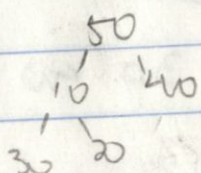 50
10 40
30 20